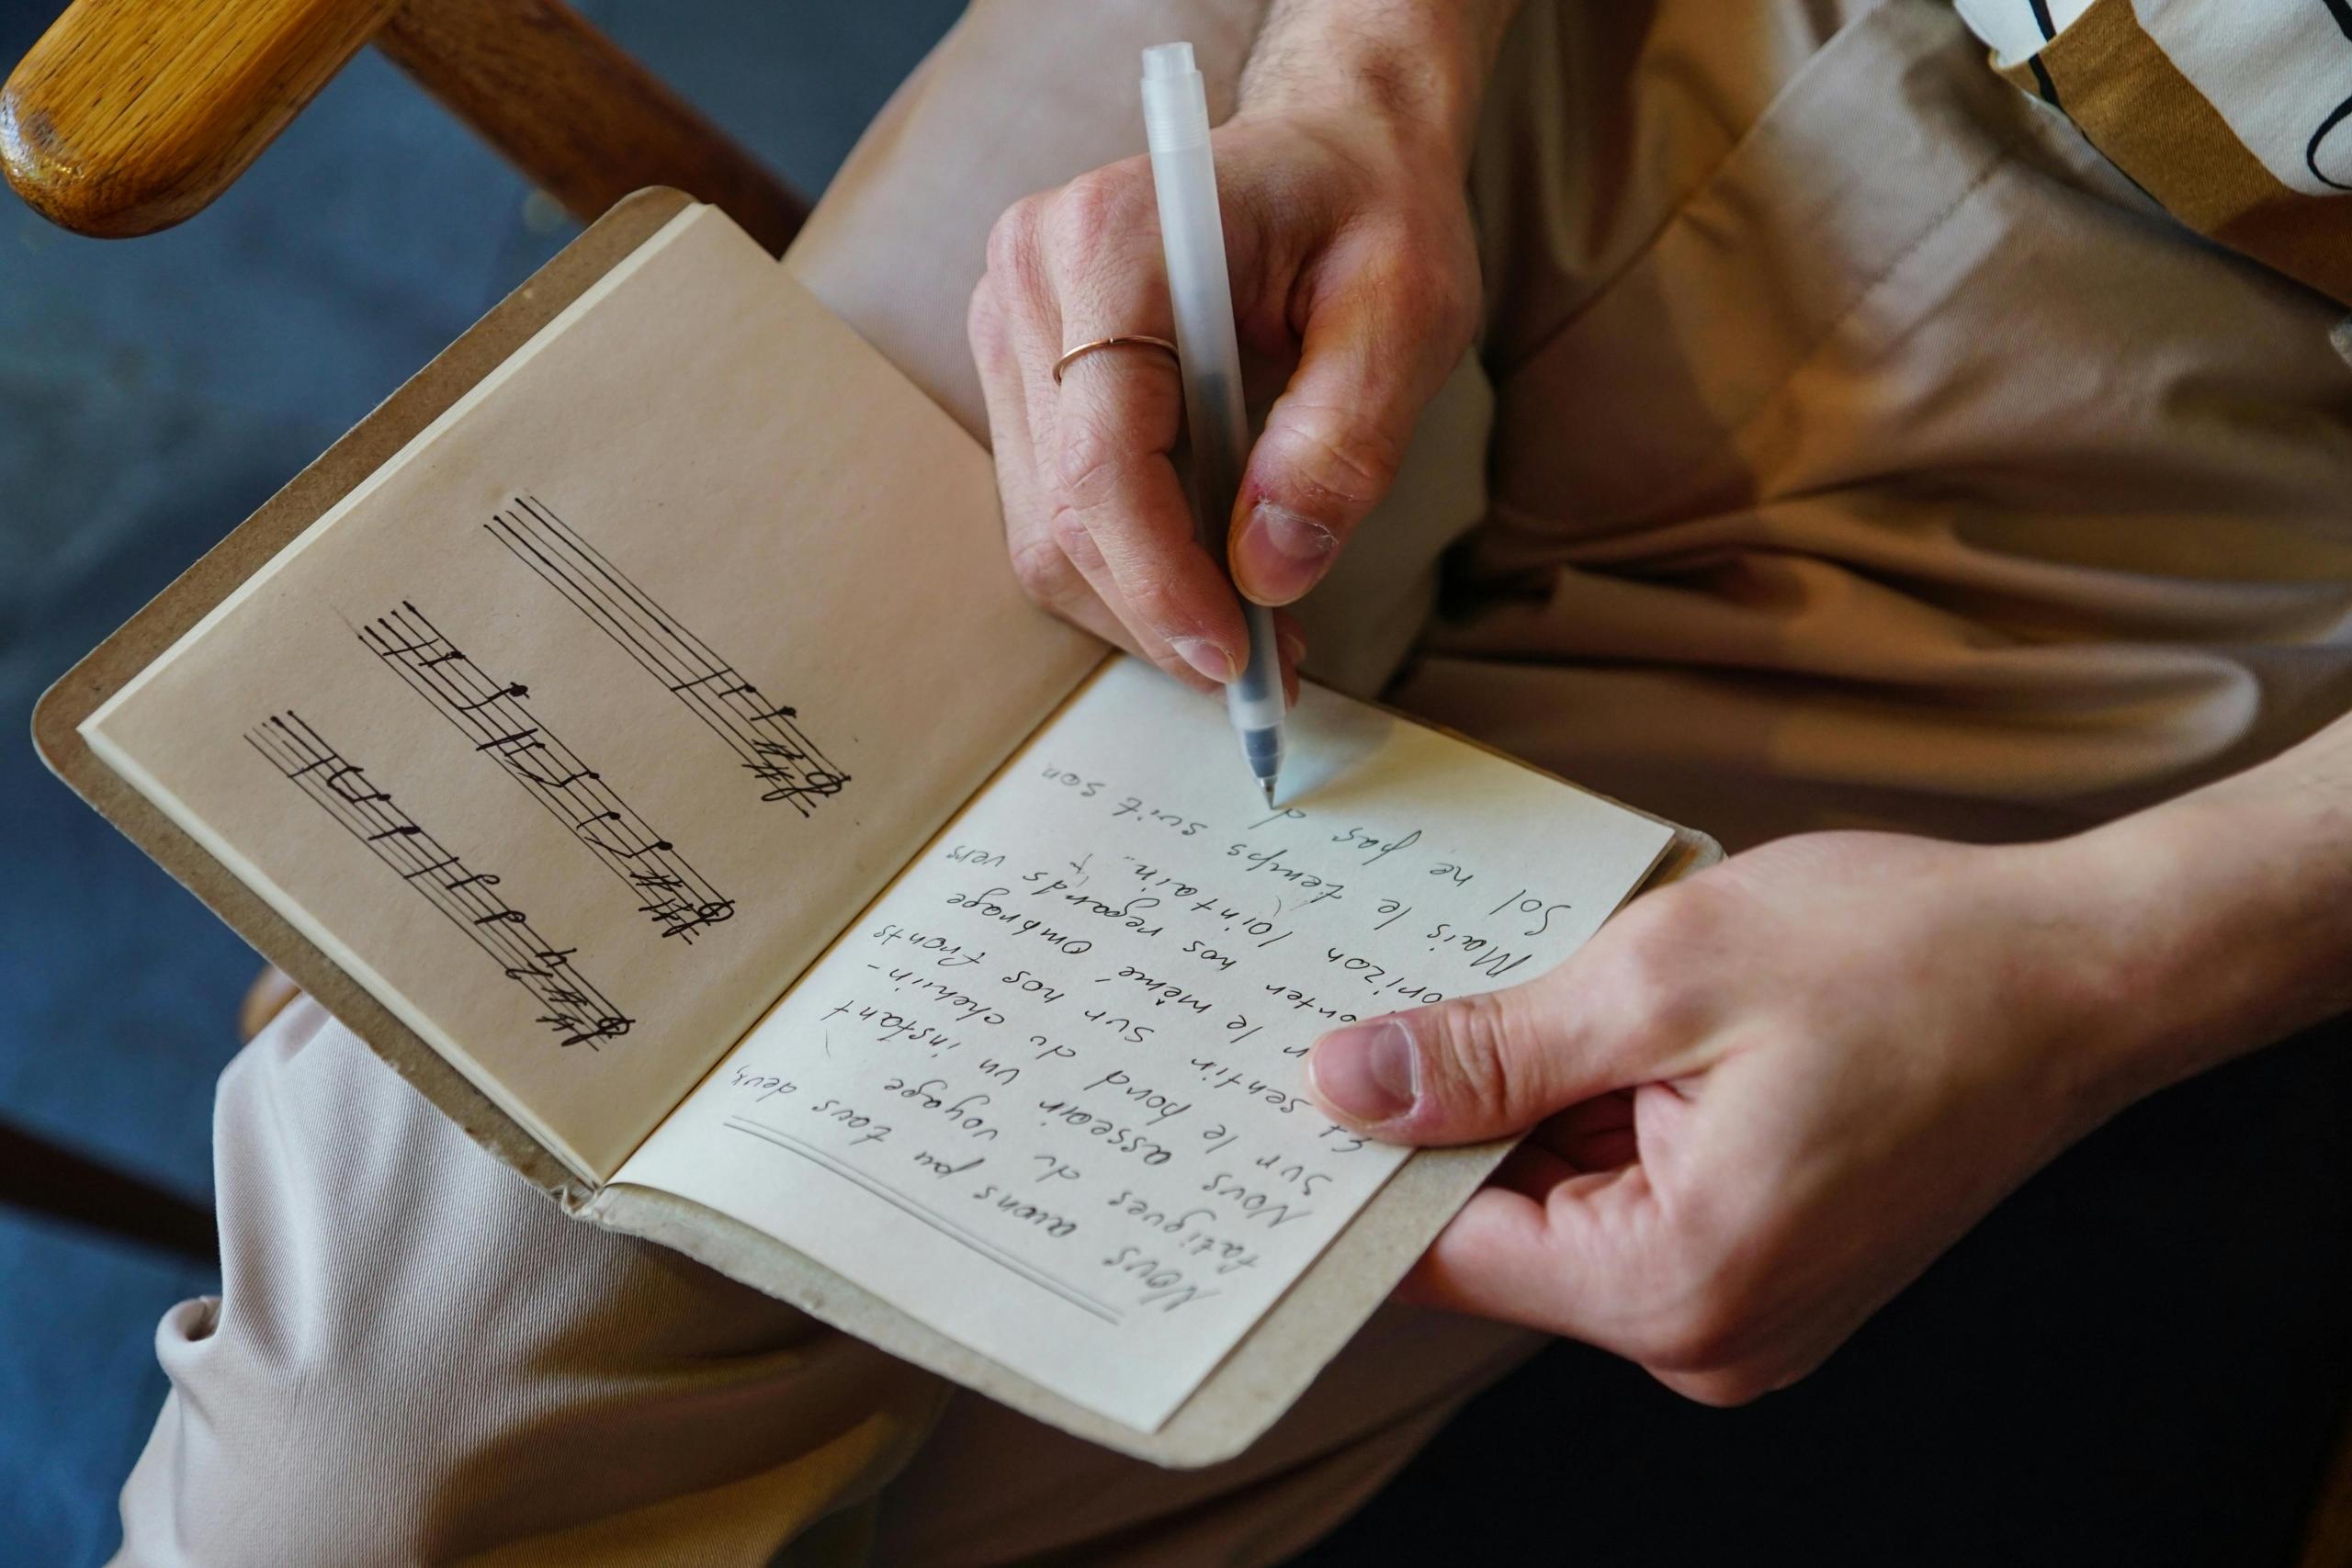 Nous avons pu tous deux,
fatigues du voyage
Nous asseoir un instant
Sur le bord du chemin-
Et sentir sur nos fronts
le même ombrage
nos regards vers
lointain..
Mais le temps suit son
Sol ne pas d